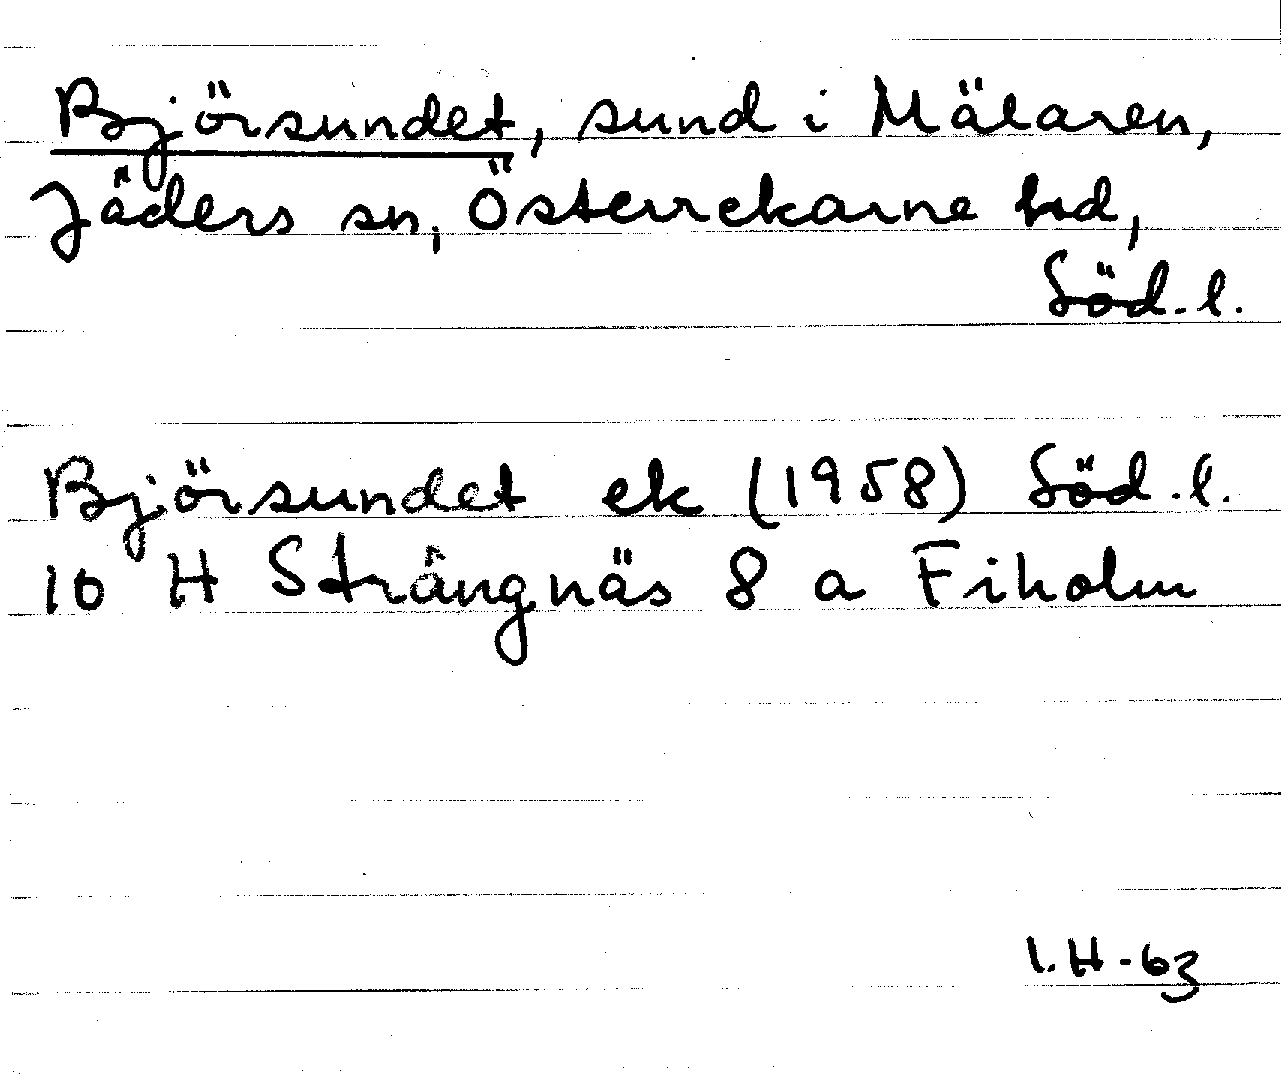 Björsundet, sund i Mälaren,
Jäders sn, Österrekarne hd,
Söd. l.
Björsundet ek (1958) Söd. l.
10 H Strängnäs 8 a Fiholm
I. H-63